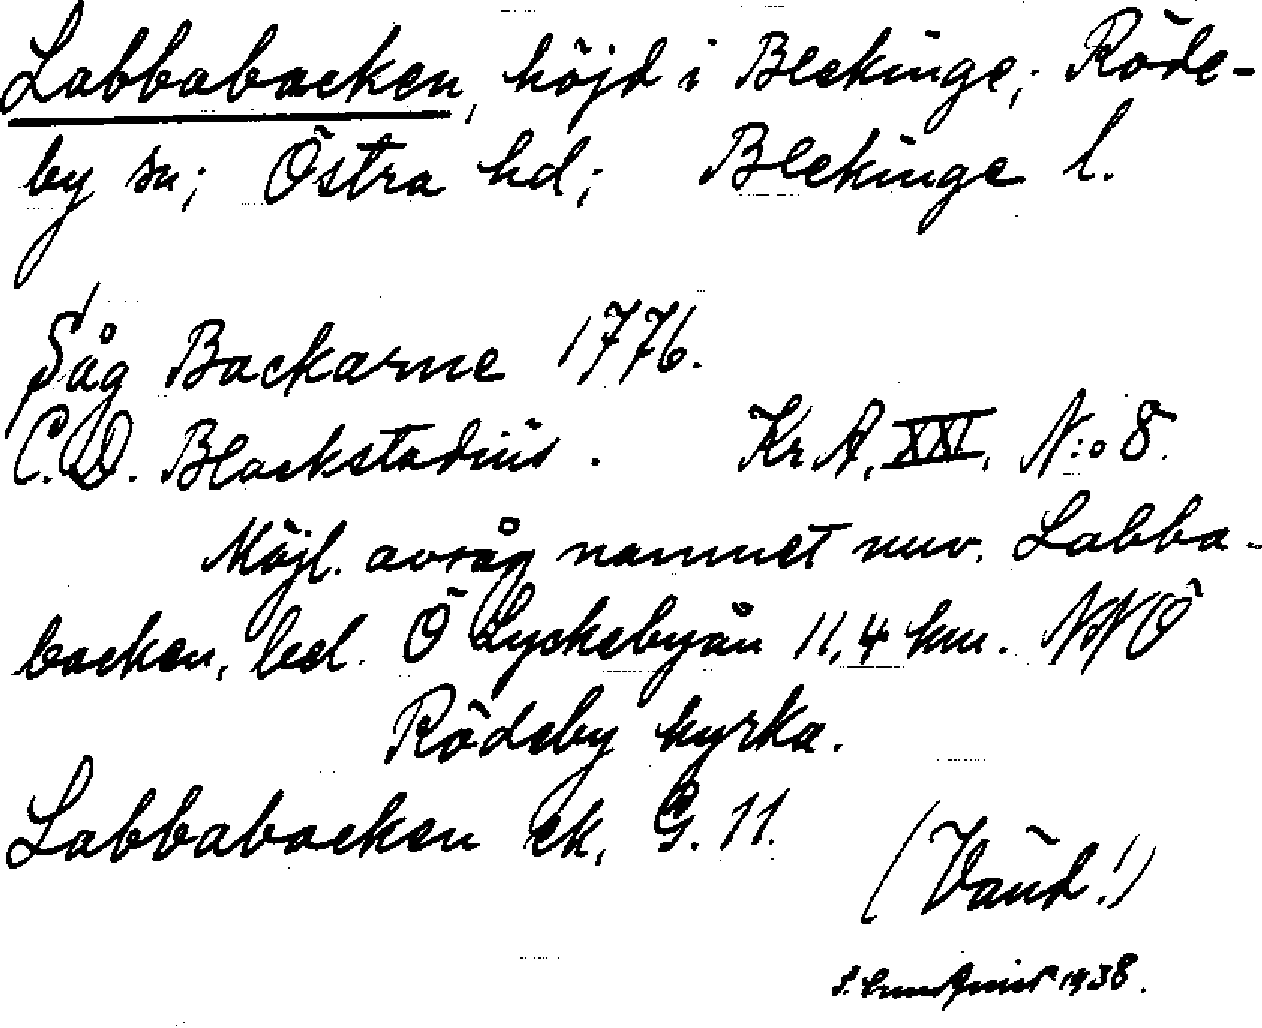 Labbabacken, höjd i Blekinge; Röde-
by sn; Östra hd; Blekinge l.
Såg Backarne 1776.
C.D. Blackstadius. Kr. A. XXI, N:o 8.
Möjl. avsåg namnet nuv. Labba-
backen, bel. Ö Lyckebyån 11,4 km. NNÖ
Rödeby kyrka.
Labbabacken ek. G. 11.
(Vänd!)
1938.